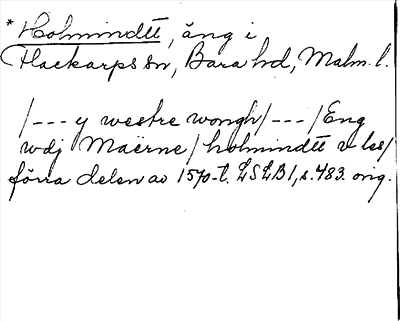 * Holmindtt, äng i
Flackarps sn, Bara hd, Malm. l.
/--- y westre wongh/---/Eng
wdj Maerne/holmindtt v lss/
förra delen av 1570-t. LSLB1, s. 483. orig.